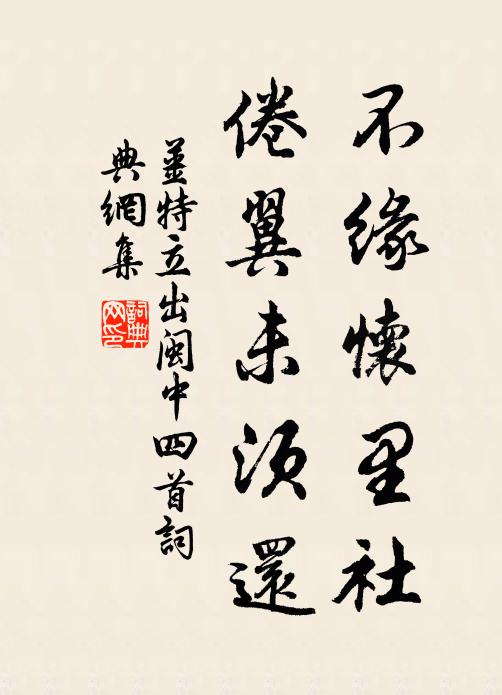 不緣懷里社
倦翼未須還
姜特立出閩中四首詞
典網集
詞典网印